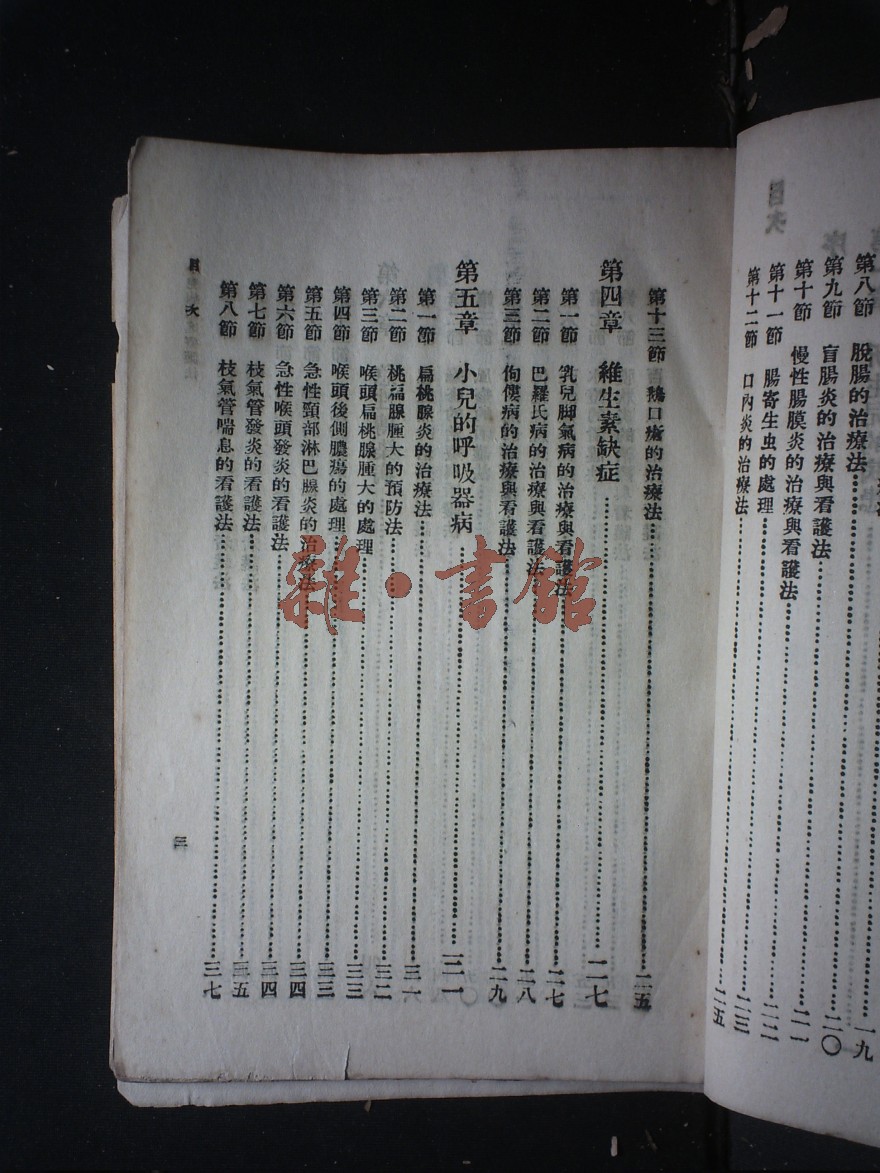 目次
第八節　脫腸的治療法……一九
第九節　盲腸炎的治療與看護法……二〇
第十節　慢性腸膜炎的治療與看護法……二一
第十一節　腸寄生虫的處理……二二
第十二節　口內炎的治療法……二三
二五
第十三節　鵝口瘡的治療法……二五
第四章　維生素缺症……二七
第一節　乳兒脚氣病的治療與看護法……二七
第二節　巴羅氏病的治療與看護法……二八
第三節　佝僂病的治療與看護法……二九
第五章　小兒的呼吸器病……三一
第一節　扁桃腺炎的治療法……三一
第二節　桃扁腺腫大的預防法……三二
第三節　喉頭扁桃腺腫大的處理……三三
第四節　喉頭後側膿瘍的處理……三三
第五節　急性頸部淋巴腺炎的治療法……三四
第六節　急性喉頭發炎的看護法……三四
第七節　枝氣管發炎的看護法……三五
第八節　枝氣管喘息的看護法……三七
目次
三
雜·書館